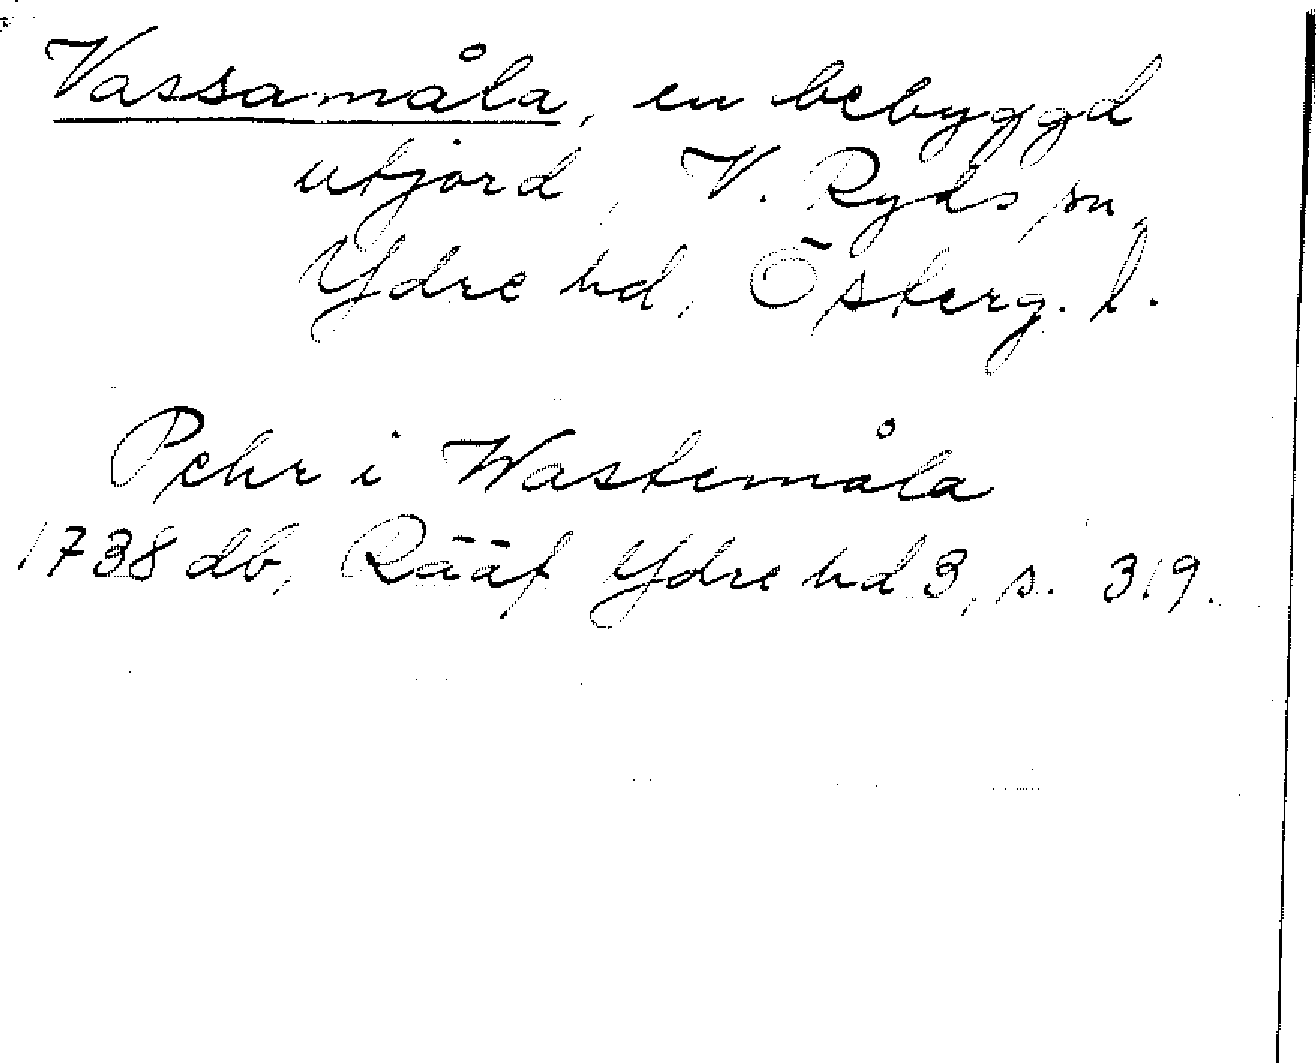 Vassamåla, en bebyggd
utjord, V. Ryds sn,
Ydre hd, Österg. l.
Pehr i Wastemåla
1738 db, Rääf Ydre hd 3, s. 319.